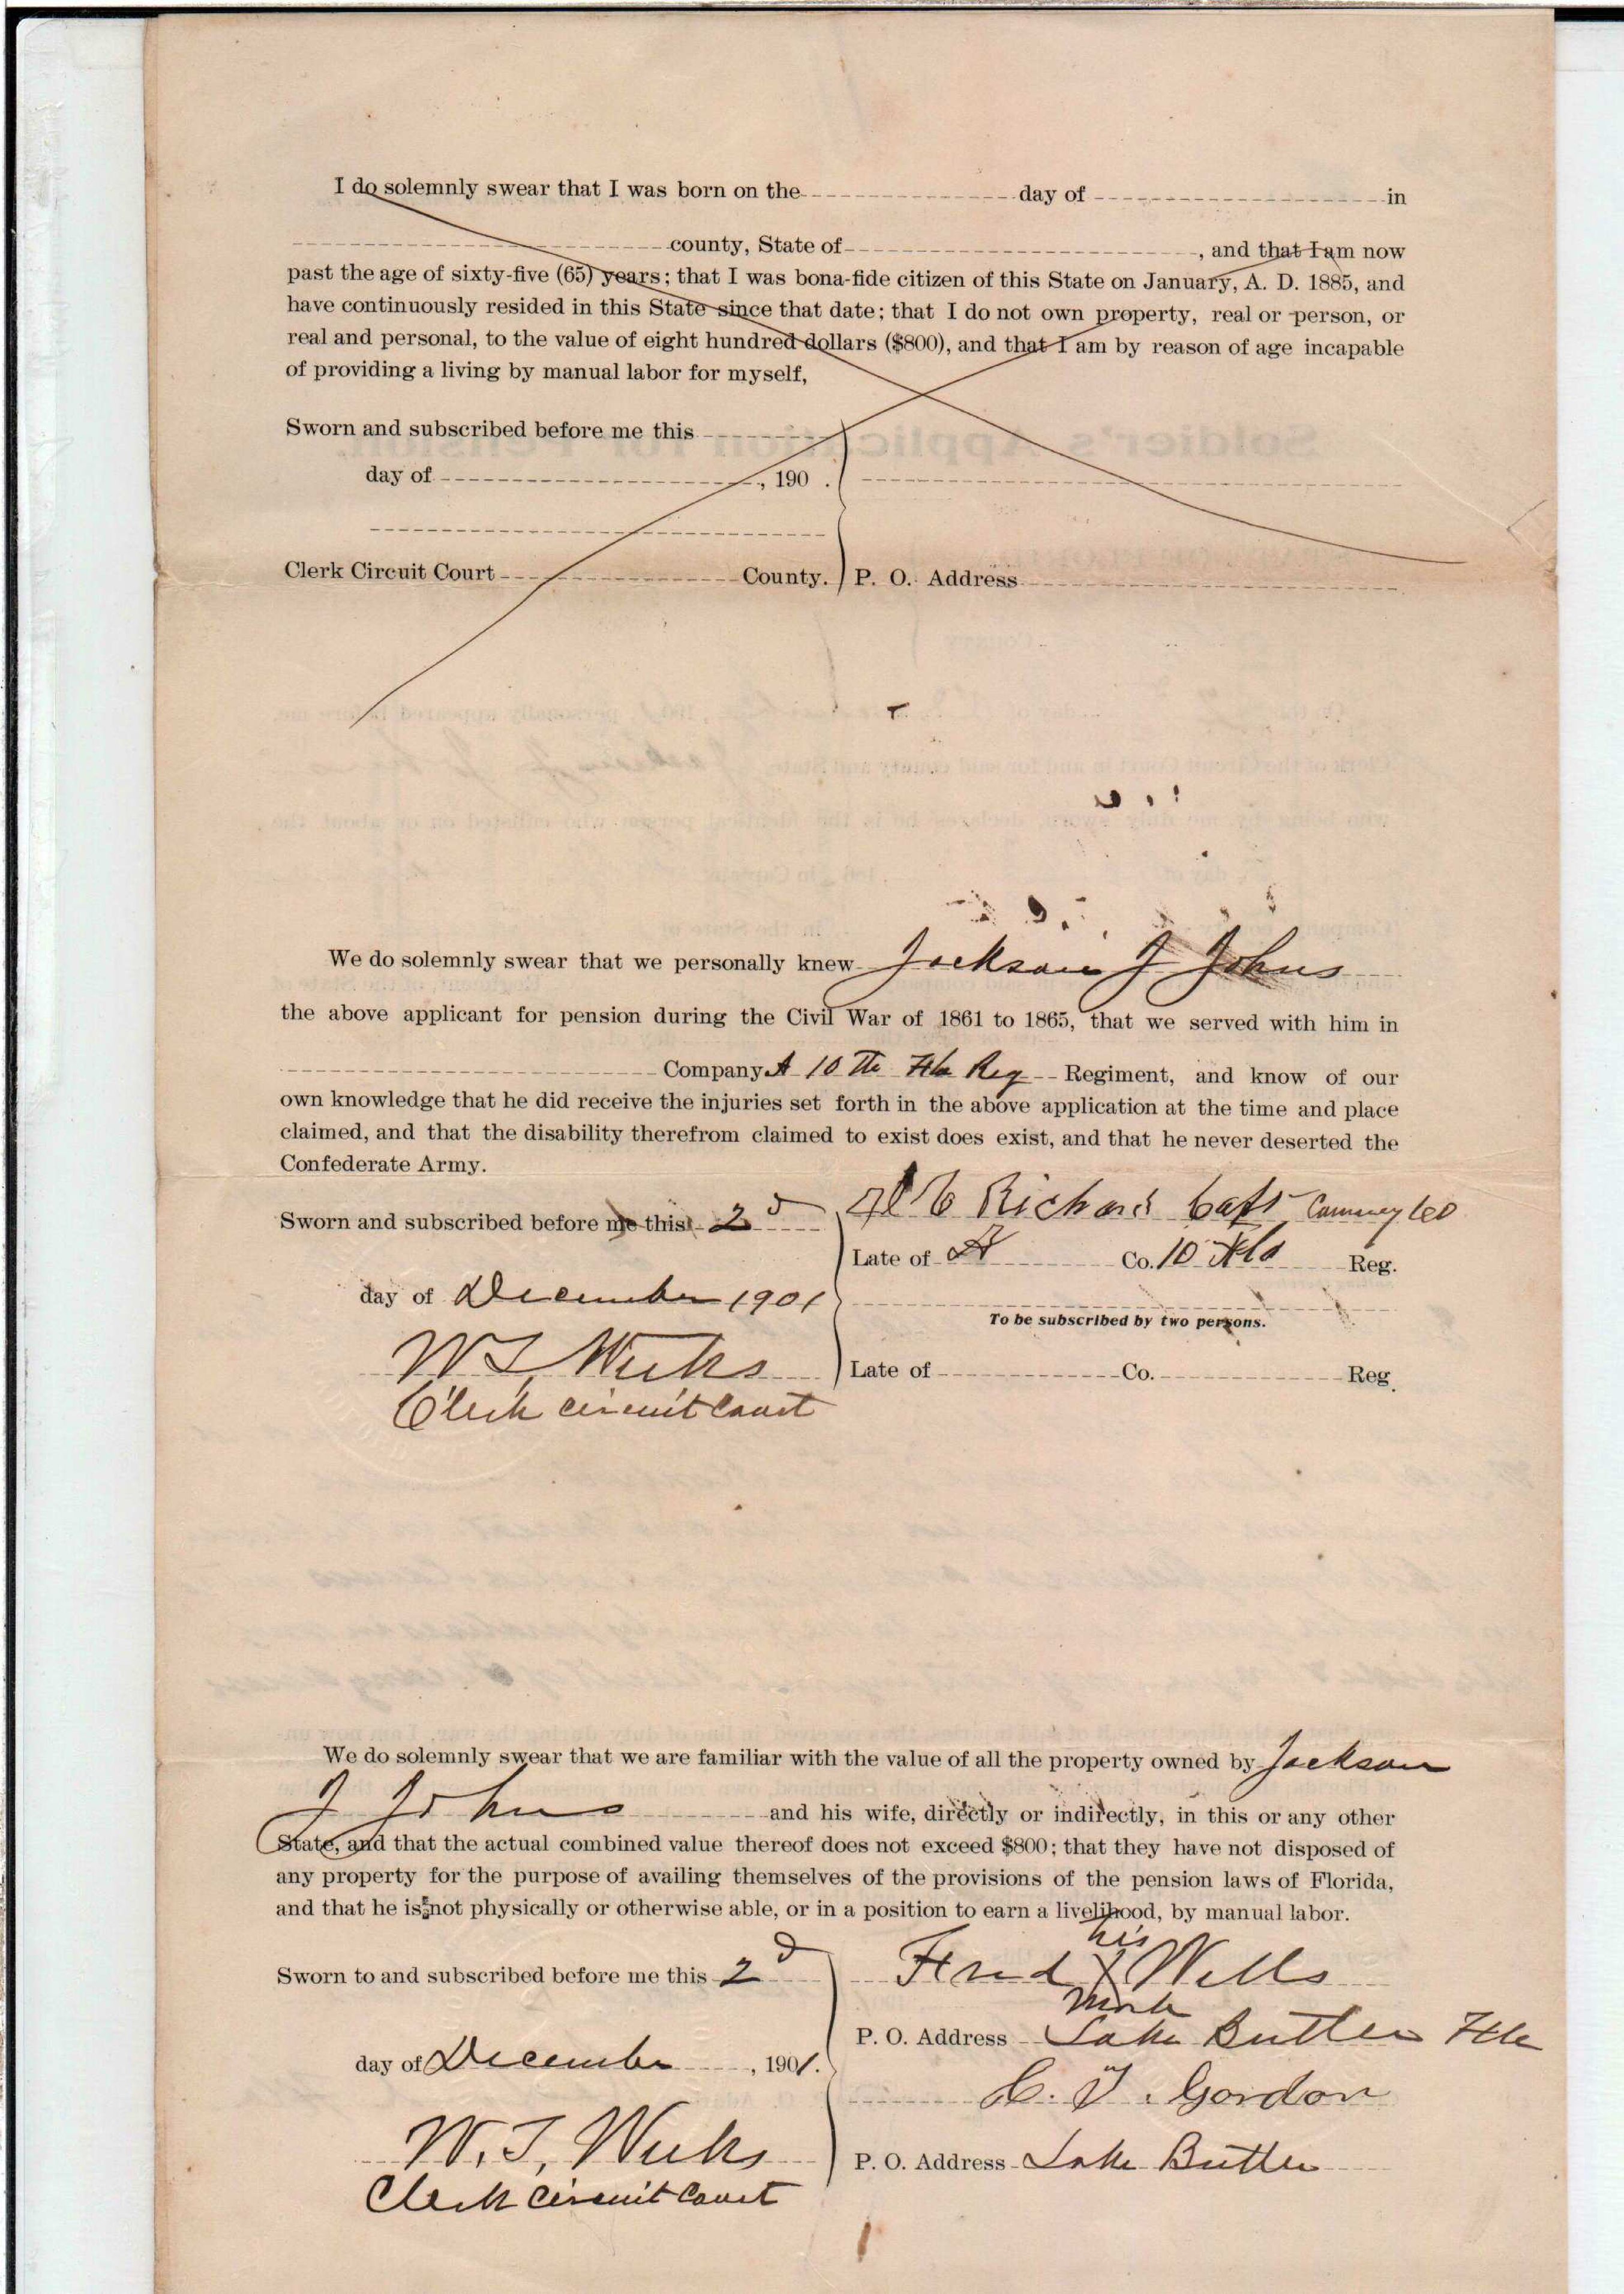 I do solemnly swear that I was born on the day of in
county, State of , and that I am now
past the age of sixty-five (65) years; that I was bona-fide citizen of this State on January, A. D. 1885, and
have continuously resided in this State since that date; that I do not own property, real or person, or
real and personal, to the value of eight hundred dollars ($800), and that I am by reason of age incapable
of providing a living by manual labor for myself,
Sworn and subscribed before me this
day of , 190 .
Clerk Circuit Court County. P. O. Address
We do solemnly swear that we personally knew Jackson J Johns
the above applicant for pension during the Civil War of 1861 to 1865, that we served with him in
Company A 10 Th Fla Reg Regiment, and know of our
own knowledge that he did receive the injuries set forth in the above application at the time and place
claimed, and that the disability therefrom claimed to exist does exist, and that he never deserted the
Confederate Army.
Sworn and subscribed before me this 2d Richard Capt
Late of A Co. 10 Fla Reg.
day of December 1901
To be subscribed by two persons.
W T Weeks Late of Co. Reg.
Clerk circuit Court
We do solemnly swear that we are familiar with the value of all the property owned by Jackson
J Johns and his wife, directly or indirectly, in this or any other
State, and that the actual combined value thereof does not exceed $800; that they have not disposed of
any property for the purpose of availing themselves of the provisions of the pension laws of Florida,
and that he is not physically or otherwise able, or in a position to earn a livelihood, by manual labor.
his
Sworn to and subscribed before me this 2d Fred X Wells
mark
P. O. Address Lake Butler Fla
day of December , 1901.
C. T. Gordon
W. T. Weeks P. O. Address Lake Butler
Clerk circuit Court